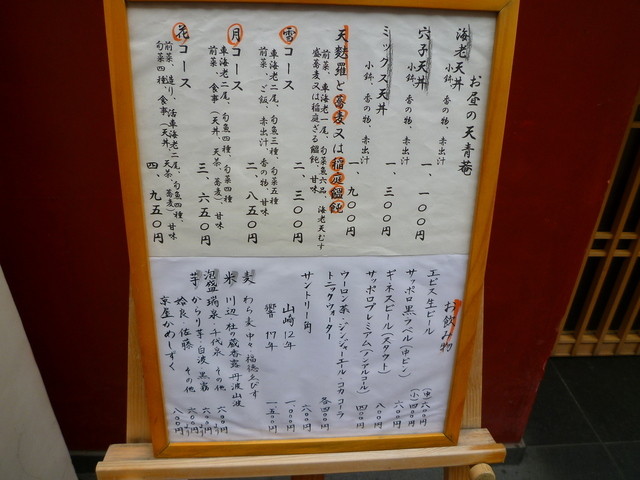 お昼の天青菴
海老天丼
小鉢、香の物、赤出汁
一、一〇〇円
穴子天丼
小鉢、香の物、赤出汁
一、三〇〇円
ミックス天丼
小鉢、香の物、赤出汁
一、九〇〇円
天麩羅と蕎麦又は稲庭饂飩
前菜、車海老一尾、旬菜魚六品、海老天むす
盛蕎麦又は稲庭ざる饂飩、甘味
二、三〇〇円
雪コース
車海老二尾、旬魚三種、旬菜五種
前菜、ご飯、赤出汁、香の物、甘味
二、八五〇円
月コース
車海老二尾、旬魚四種、旬菜四種
前菜、食事(天丼、天茶、蕎麦)、甘味
三、六五〇円
花コース
前菜、造り、活車海老二尾、旬魚四種、
旬菜四種、食事(天丼、天茶、蕎麦)、甘味
四、九五〇円
お飲み物
エビス生ビール
(中)六〇〇円
(小)四〇〇円
サッポロ黒ラベル(中ビン)
六〇〇円
ギネスビール(スタウト)
八〇〇円
サッポロプレミアム(ノンアルコール)
四〇〇円
ウーロン茶・ジンジャーエール・コカコーラ
トニックウォーター
各四〇〇円
サントリー角
六〇〇円
山崎12年
一、〇〇〇円
響17年
一、五〇〇円
麦 わら麦 中々 福徳えびす
米 川辺 杜の蔵 香露 丹波山波
六〇〇円
泡盛 瑞泉 千代泉 その他
六〇〇円
芋 からり芋 白波 黒霧
六〇〇円
佐藤 その他
京屋かめしずく
八〇〇円